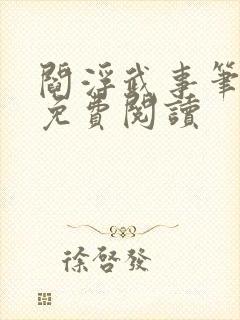 閻浮武事筆
免費閱讀
徐啓發